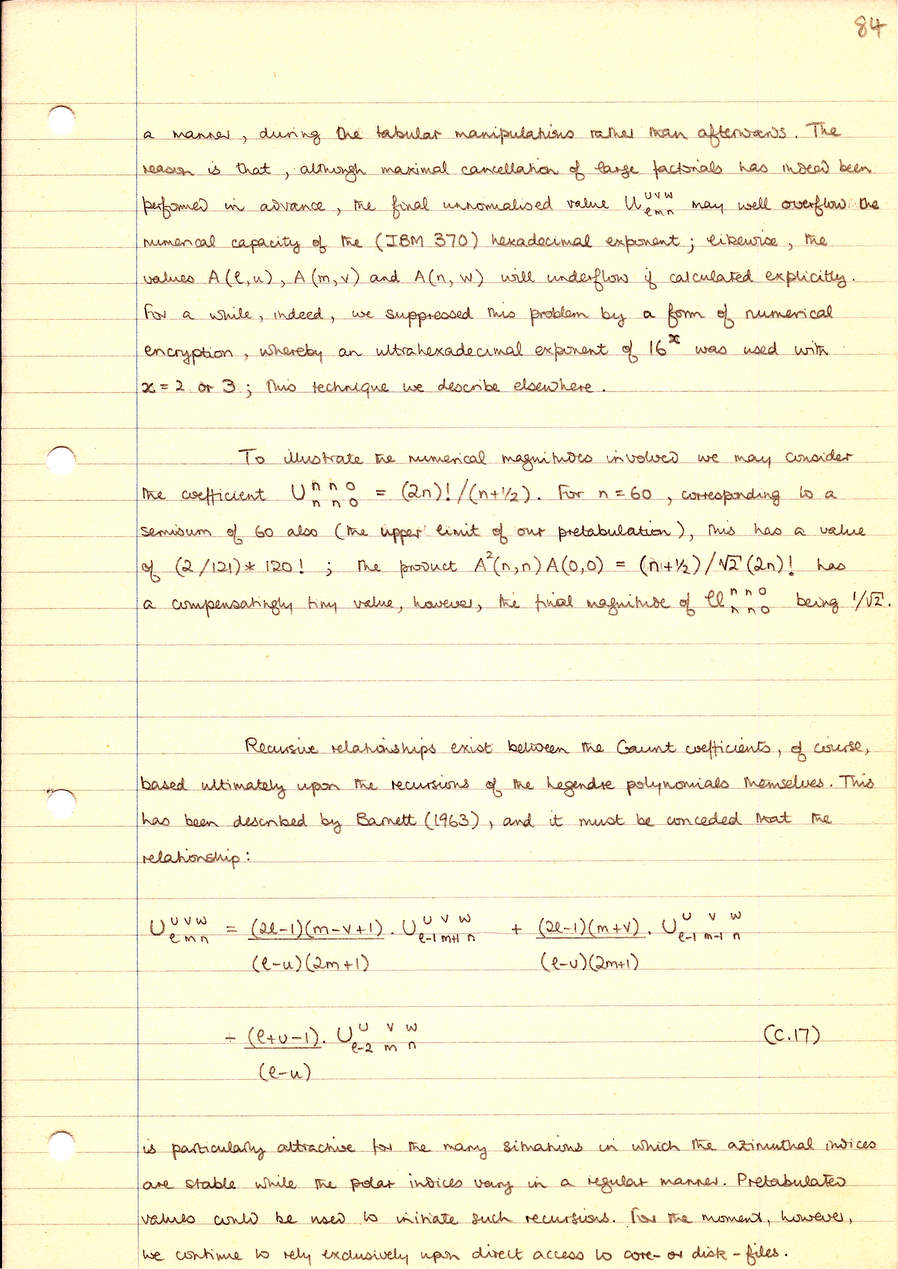 84
a manner, during the tabular manipulations rather than afterwards. The
reason is that, although maximal cancellation of large factorials has indeed been
performed in advance, the final unnormalised value U^{u v w}_{l m n} may well overflow the
numerical capacity of the (IBM 370) hexadecimal exponent; likewise, the
values A(l,u), A(m,v) and A(n,w) will underflow if calculated explicitly.
For a while, indeed, we suppressed this problem by a form of numerical
encryption, whereby an ultrahexadecimal exponent of 16^x was used with
x = 2 or 3; this technique we describe elsewhere.
To illustrate the numerical magnitudes involved we may consider
the coefficient U^{n n 0}_{n n 0} = (2n)!/(n+1/2). For n = 60, corresponding to a
semisum of 60 also (the upper limit of our pretabulation), this has a value
of (2/121)* 120! ; the product A²(n,n)A(0,0) = (n+1/2)/√2 (2n)! has
a compensatingly tiny value, however, the final magnitude of U^{n n 0}_{n n 0} being 1/√2.
Recursive relationships exist between the Gaunt coefficients, of course,
based ultimately upon the recursions of the Legendre polynomials themselves. This
has been described by Barnett (1963), and it must be conceded that the
relationship:
U^{u v w}_{l m n} = (2l-1)(m-v+1)/(l-u)(2m+1) . U^{u v w}_{l-1 m+1 n} + (2l-1)(m+v)/(l-u)(2m+1) . U^{u v w}_{l-1 m-1 n}
- (l+u-1)/(l-u) . U^{u v w}_{l-2 m n} (C.17)
is particularly attractive for the many situations in which the azimuthal indices
are stable while the polar indices vary in a regular manner. Pretabulated
values could be used to initiate such recursions. For the moment, however,
we continue to rely exclusively upon direct access to core- or disk-files.